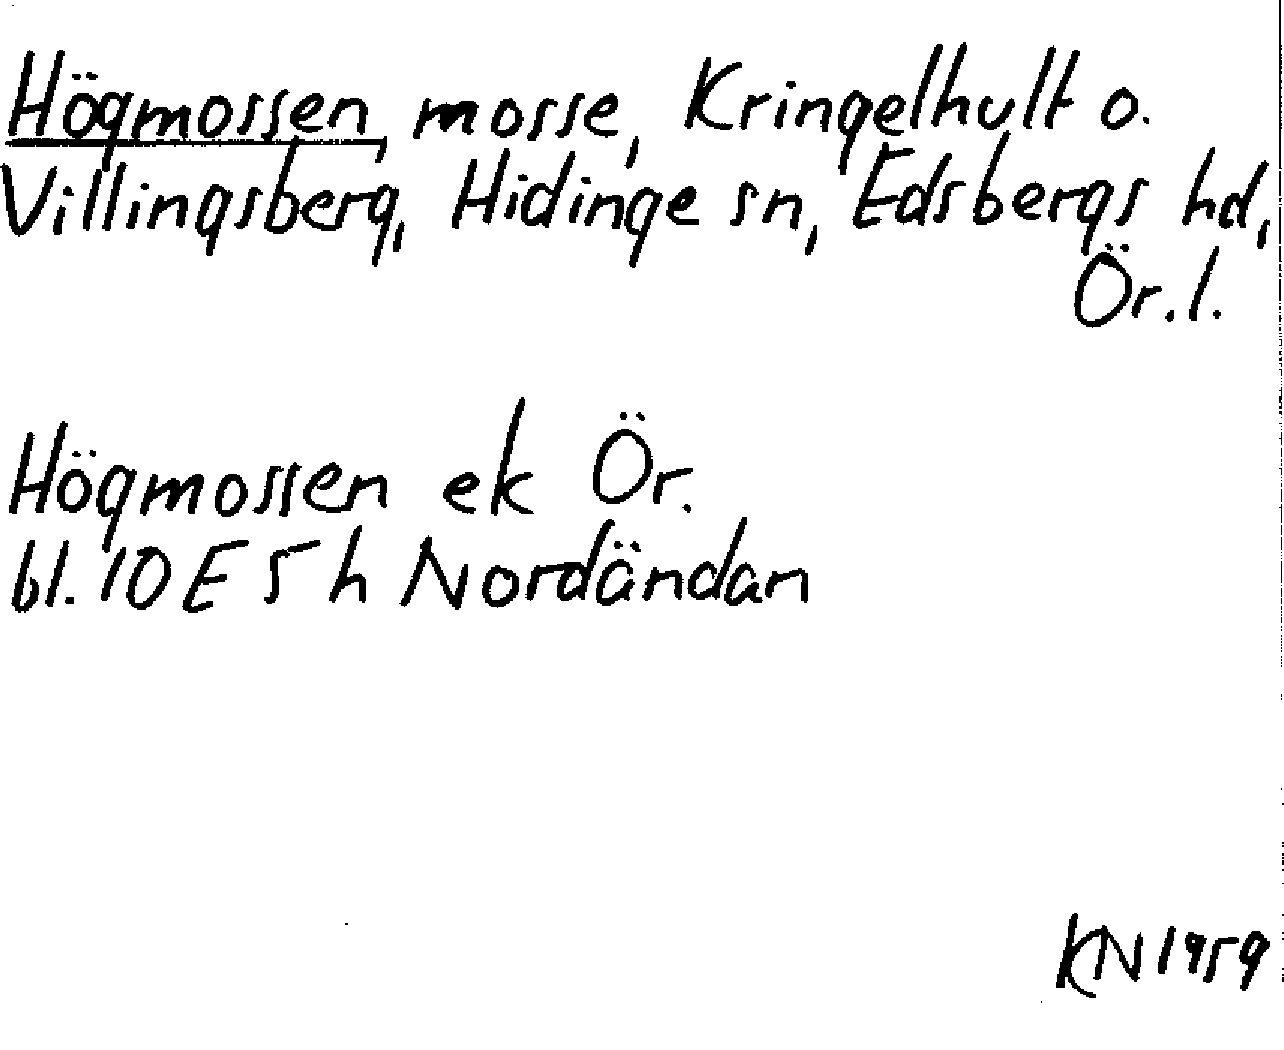 Högmossen, mosse, Kringelhult o.
Villingsberg, Hidinge sn, Edsbergs hd,
Ör.l.
Högmossen ek Ör.
bl. 10 E 5 h Nordändan
KN 1959